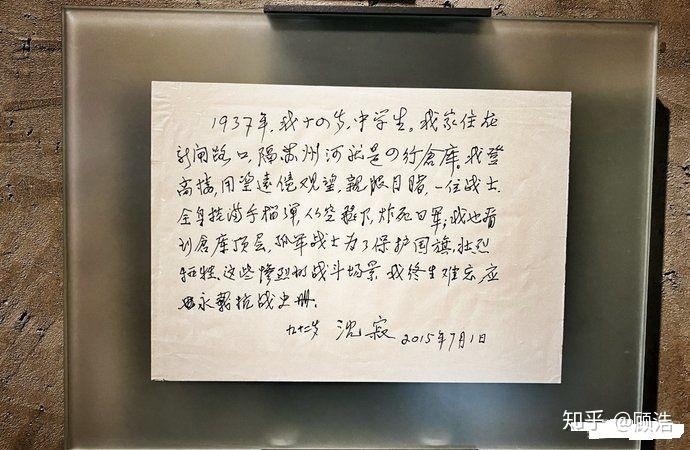 1937年，我十四岁，中学生。我家住在
新闸路口，隔苏州河就是四行仓库。我登
高楼，用望远镜观望，亲眼目睹，一位战士
全身挂满手榴弹，从空跳下，炸死日军；我也看
到仓库顶层，孤军战士为了保护国旗，壮烈
牺牲，这些惨烈的战斗场景，我终生难忘，应
永载抗战史册。
九十二岁 沈寂 2015年7月1日
知乎 @顾浩